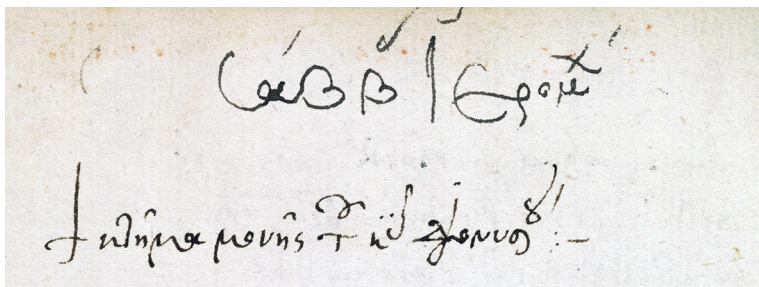 σάββ ἱερομχ
† κτῆμα μονῆς τοῦ κυ διονυσίου :–